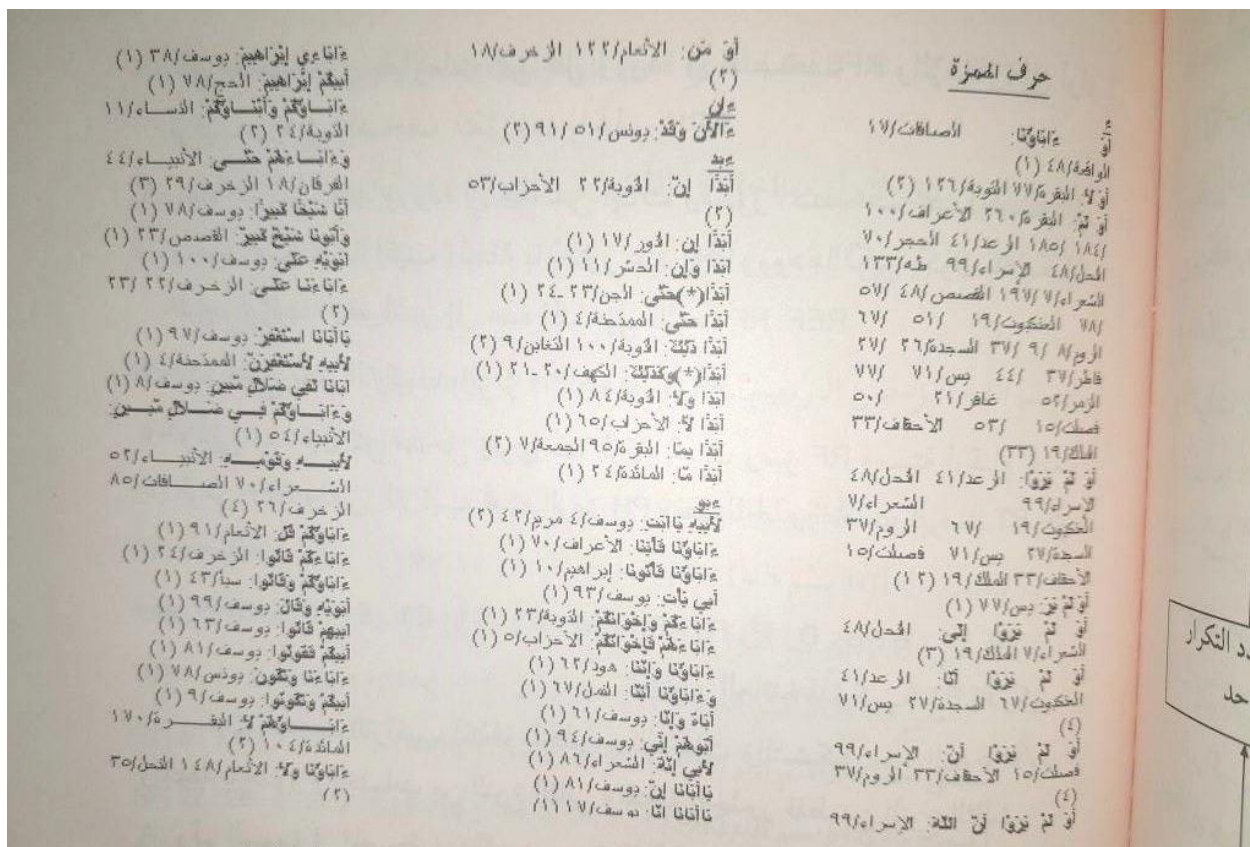 حرف الهمزة
ءأو
ءَابَاؤُنَا: الصافات/١٧
الواقعة/٤٨ (١)
أَوَ لَا: البقرة/٧٧ التوبة/١٢٦ (٢)
أَوَ لَمْ: البقرة/٢٦٠ الأعراف/١٠٠
/١٨٤ /١٨٥ الرعد/٤١ الحجر/٧٠
النحل/٤٨ الإسراء/٩٩ طه/١٣٣
الشعراء/٧ /١٩٧ القصص/٤٨ /٥٧
/٧٨ العنكبوت/١٩ /٥١ /٦٧
الروم/٨ /٩ /٣٧ السجدة/٢٦ /٢٧
فاطر/٣٧ /٤٤ يس/٧١ /٧٧
الزمر/٥٢ غافر/٢١ /٥٠
فصلت/١٥ /٥٣ الأحقاف/٣٣
الملك/١٩ (٣٣)
أَوَ لَمْ يَرَوْا: الرعد/٤١ النحل/٤٨
الإسراء/٩٩ الشعراء/٧
العنكبوت/١٩ /٦٧ الروم/٣٧
السجدة/٢٧ يس/٧١ فصلت/١٥
الأحقاف/٣٣ الملك/١٩ (١٢)
أَوَ لَمْ يَرَ: يس/٧٧ (١)
أَوَ لَمْ يَرَوْا إِلَى: النحل/٤٨
الشعراء/٧ الملك/١٩ (٣)
أَوَ لَمْ يَرَوْا أَنَّا: الرعد/٤١
العنكبوت/٦٧ السجدة/٢٧ يس/٧١
(٤)
أَوَ لَمْ يَرَوْا أَنَّ: الإسراء/٩٩
فصلت/١٥ الأحقاف/٣٣ الروم/٣٧
(٤)
أَوَ لَمْ يَرَوْا أَنَّ اللَّهَ: الإسراء/٩٩
أَوَ مَن: الأنعام/١٢٢ الزخرف/١٨
(٢)
ءان
ءَالْآنَ وَقَدْ: يونس/٥١ /٩١ (٢)
ءبد
أَبَدًا إِنَّ: التوبة/٢٢ الأحزاب/٥٣
(٢)
أَبَدًا إِن: النور/١٧ (١)
أَبَدًا وَإِن: الحشر/١١ (١)
أَبَدًا(*)حَتَّى: الجن/٢٣ـ٢٤ (١)
أَبَدًا حَتَّى: الممتحنة/٤ (١)
أَبَدًا ذَلِكَ: التوبة/١٠٠ التغابن/٩ (٢)
أَبَدًا(*)وَكَذَلِكَ: الكهف/٢٠ـ٢١ (١)
أَبَدًا وَلَا: التوبة/٨٤ (١)
أَبَدًا لَا: الأحزاب/٦٥ (١)
أَبَدًا بِمَا: البقرة/٩٥ الجمعة/٧ (٢)
أَبَدًا مَّا: المائدة/٢٤ (١)
ءبو
لِأَبِيهِ يَاأَبَتِ: يوسف/٤ مريم/٤٢ (٢)
ءَابَاؤُنَا فَأْتِنَا: الأعراف/٧٠ (١)
ءَابَاؤُنَا فَأْتُونَا: إبراهيم/١٠ (١)
أَبِي يَأْتِ: يوسف/٩٣ (١)
ءَابَاءَكُمْ وَإِخْوَانَكُمْ: التوبة/٢٣ (١)
ءَابَاءَهُمْ فَإِخْوَانُكُمْ: الأحزاب/٥ (١)
ءَابَاؤُنَا وَإِنَّنَا: هود/٦٢ (١)
وَءَابَاؤُنَا أَئِنَّا: النمل/٦٧ (١)
أَبَاهُ وَإِنَّا: يوسف/٦١ (١)
أَبُوهُمْ إِنِّي: يوسف/٩٤ (١)
لِأَبِي إِنَّهُ: الشعراء/٨٦ (١)
يَاأَبَانَا إِنَّ: يوسف/٨١ (١)
يَاأَبَانَا إِنَّا: يوسف/١٧ (١)
ءَابَاءِي إِبْرَاهِيمَ: يوسف/٣٨ (١)
أَبِيكُمْ إِبْرَاهِيمَ: الحج/٧٨ (١)
ءَابَاؤُكُمْ وَأَبْنَاؤُكُمْ: النساء/١١
التوبة/٢٤ (٢)
وَءَابَاءَهُمْ حَتَّى: الأنبياء/٤٤
الفرقان/١٨ الزخرف/٢٩ (٣)
أَبًا شَيْخًا كَبِيرًا: يوسف/٧٨ (١)
وَأَبُونَا شَيْخٌ كَبِيرٌ: القصص/٢٣ (١)
أَبَوَيْهِ عَلَى: يوسف/١٠٠ (١)
ءَابَاءَنَا عَلَى: الزخرف/٢٢ /٢٣
(٢)
يَاأَبَانَا اسْتَغْفِرْ: يوسف/٩٧ (١)
لِأَبِيهِ لَأَسْتَغْفِرَنَّ: الممتحنة/٤ (١)
أَبَانَا لَفِي ضَلَالٍ مُّبِينٍ: يوسف/٨ (١)
وَءَابَاؤُكُمْ فِي ضَلَالٍ مُّبِينٍ:
الأنبياء/٥٤ (١)
لِأَبِيهِ وَقَوْمِهِ: الأنبياء/٥٢
الشعراء/٧٠ الصافات/٨٥
الزخرف/٢٦ (٤)
ءَابَاؤُكُمْ قُلِ: الأنعام/٩١ (١)
ءَابَاءَكُمْ قَالُوا: الزخرف/٢٤ (١)
ءَابَاؤُكُمْ وَقَالُوا: سبأ/٤٣ (١)
أَبَوَيْهِ وَقَالَ: يوسف/٩٩ (١)
أَبِيهِمْ قَالُوا: يوسف/٦٣ (١)
أَبِيكُمْ فَقُولُوا: يوسف/٨١ (١)
ءَابَاءَنَا وَتَكُونَ: يونس/٧٨ (١)
أَبِيكُمْ وَتَكُونُوا: يوسف/٩ (١)
ءَابَاؤُهُمْ لَا: البقرة/١٧٠
المائدة/١٠٤ (٢)
ءَابَاؤُنَا وَلَا: الأنعام/١٤٨ النحل/٣٥
(٢)